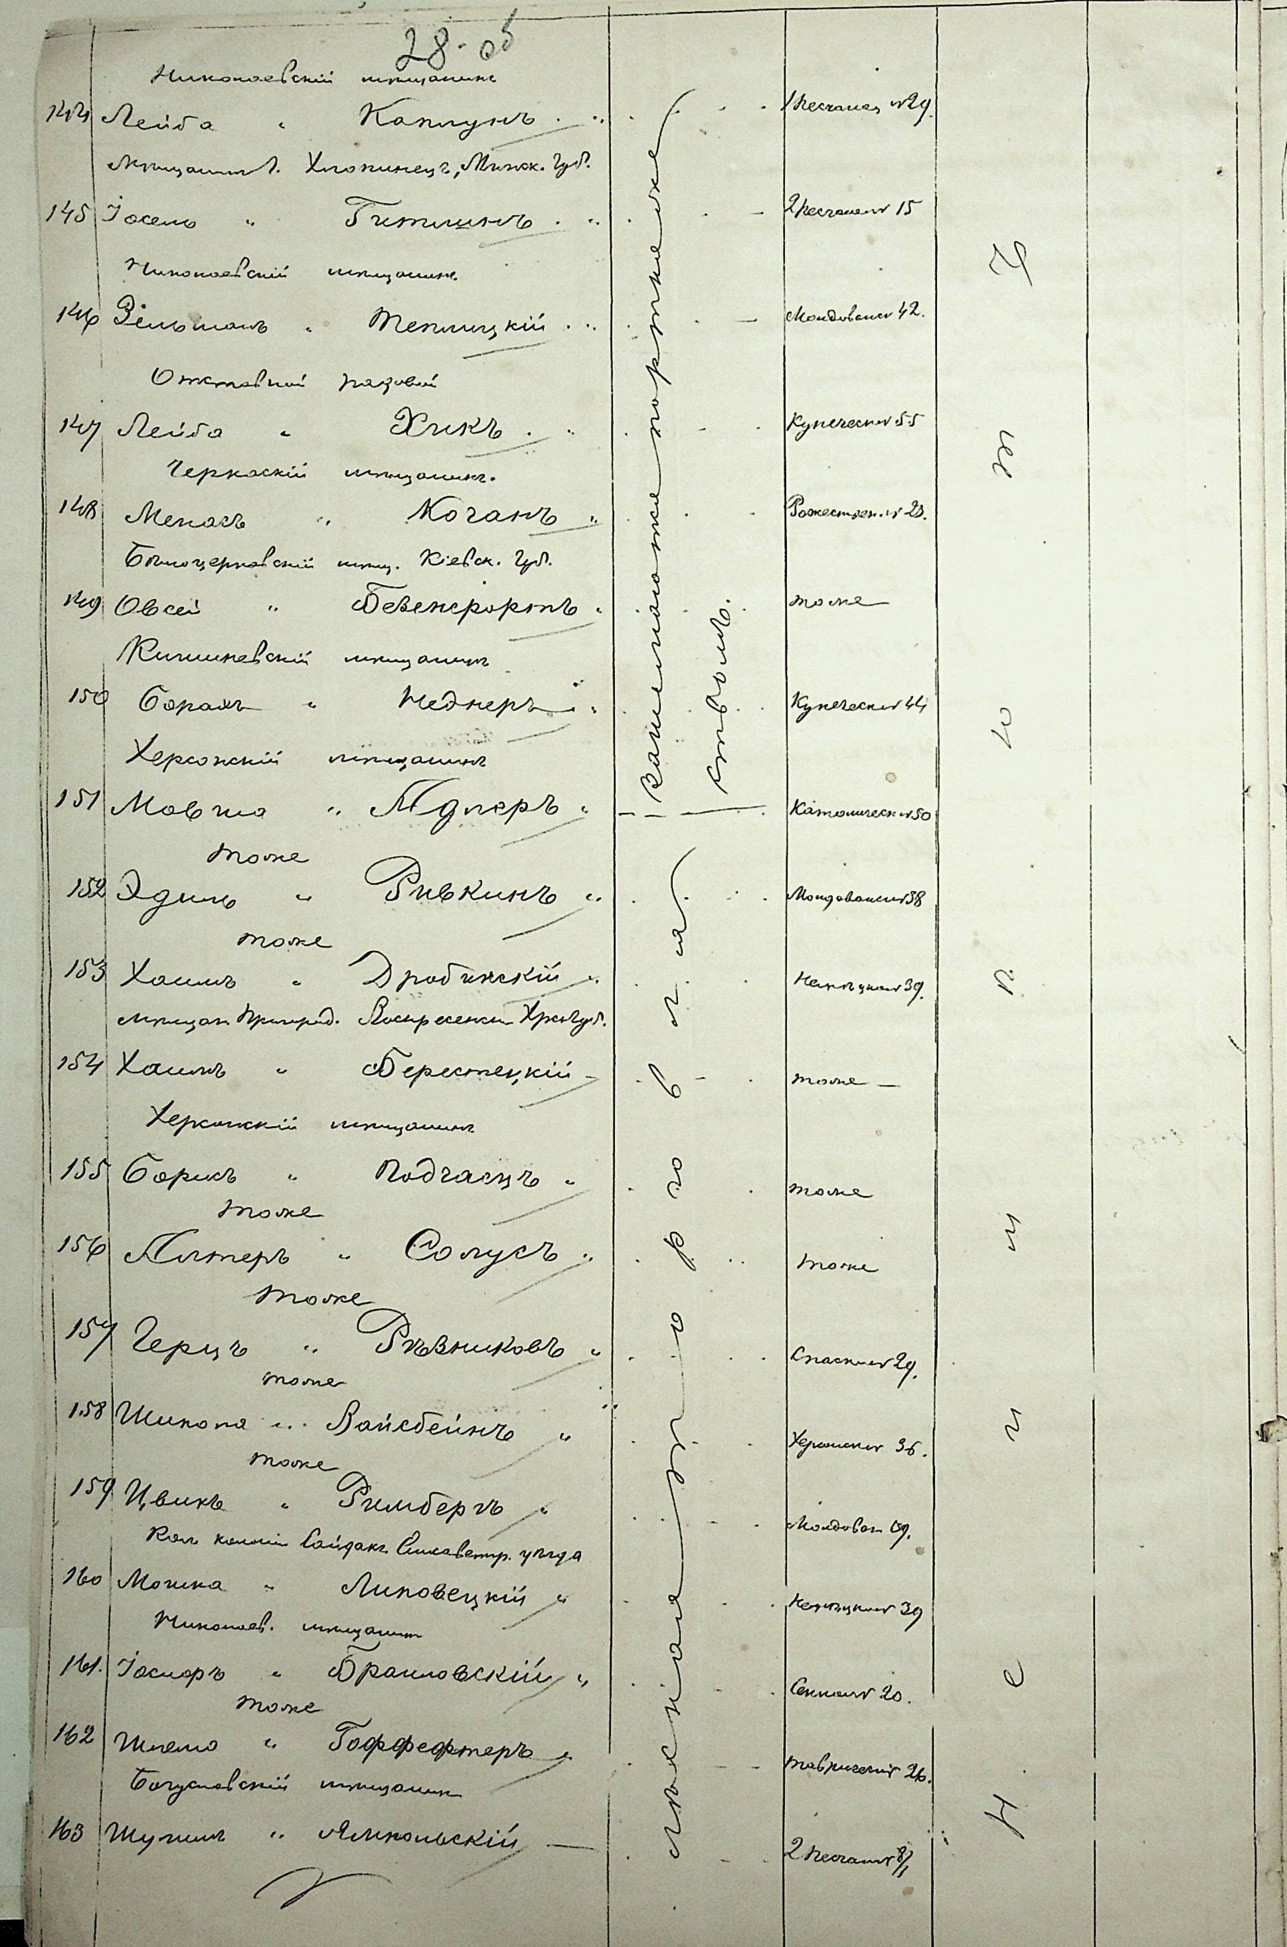 28. об
Николаевскій мѣщанинъ
144 Лейба " Каплунъ " 1 Песчаная № 29.
Мѣщанин М. Хлопинецъ, Минск. Губ.
145 Іосель " Гитлинъ " 2 Песчаная № 15
Николаевскій мѣщанинъ
146 Зельманъ " Теплицкій " Молдованск № 42.
Отставной рядовой
147 Лейба " Хикъ " Купеческ № 55
Черкаскій мѣщанинъ.
148 Менасъ " Коганъ " Рожествен. № 23.
Бѣлоцерковскій мѣщ. Кіевск. Губ.
149 Овсей " Безенфортъ " тоже
Кишиневскій мѣщанинъ
150 Борахъ " Неднеръ " Купеческ № 44
Херсонскій мѣщанинъ
151 Мовша " Адлеръ " Католическ № 50
тоже
152 Эдиль " Ривкинъ " Молдованск № 38
тоже
153 Хаимъ " Дробинскій " Немецкая № 39.
мѣщан. Пригород. Воскресенск Хрс. губ.
154 Хаимъ " Берестецкій тоже
Херсонскій мѣщанинъ
155 Борисъ " Подгаецъ " тоже
тоже
156 Алтеръ " Солусъ " тоже
тоже
157 Герцъ " Рѣзниковъ " Спаская № 29.
тоже
158 Шикопа " Вайсбейнъ " Херсонская № 36.
тоже
159 Цвикъ " Римбергъ " Молдован 69.
Кол. колоніи Сайдакъ Елисаветгр. уѣзда
160 Мошка " Липовецкій " Немецкая № 39
Николаев. мѣщанин
161. Іосифъ " Браиловскій " Сенная № 20.
тоже
162 Шлема " Гоффефтеръ " Таврическ № 26.
Богуславскій мѣщанин
163 Шулим " Ямпольскій 2 Песчаная № 8/1
занимаются портняжеством.
мѣлкая торговля
Не имѣютъ